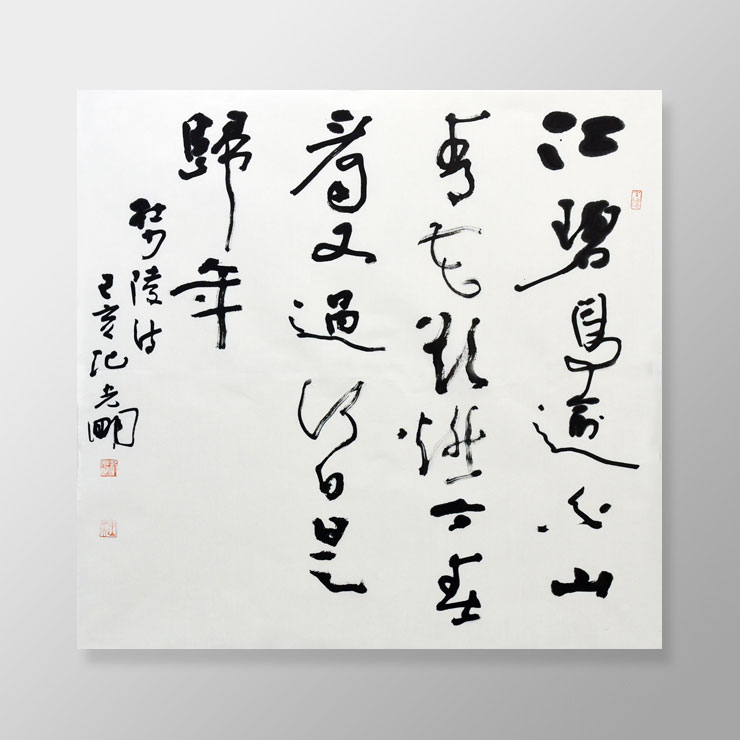 江碧鳥逾白山
青花欲燃今春
看又過何日是
歸年
杜少陵诗
己亥光明